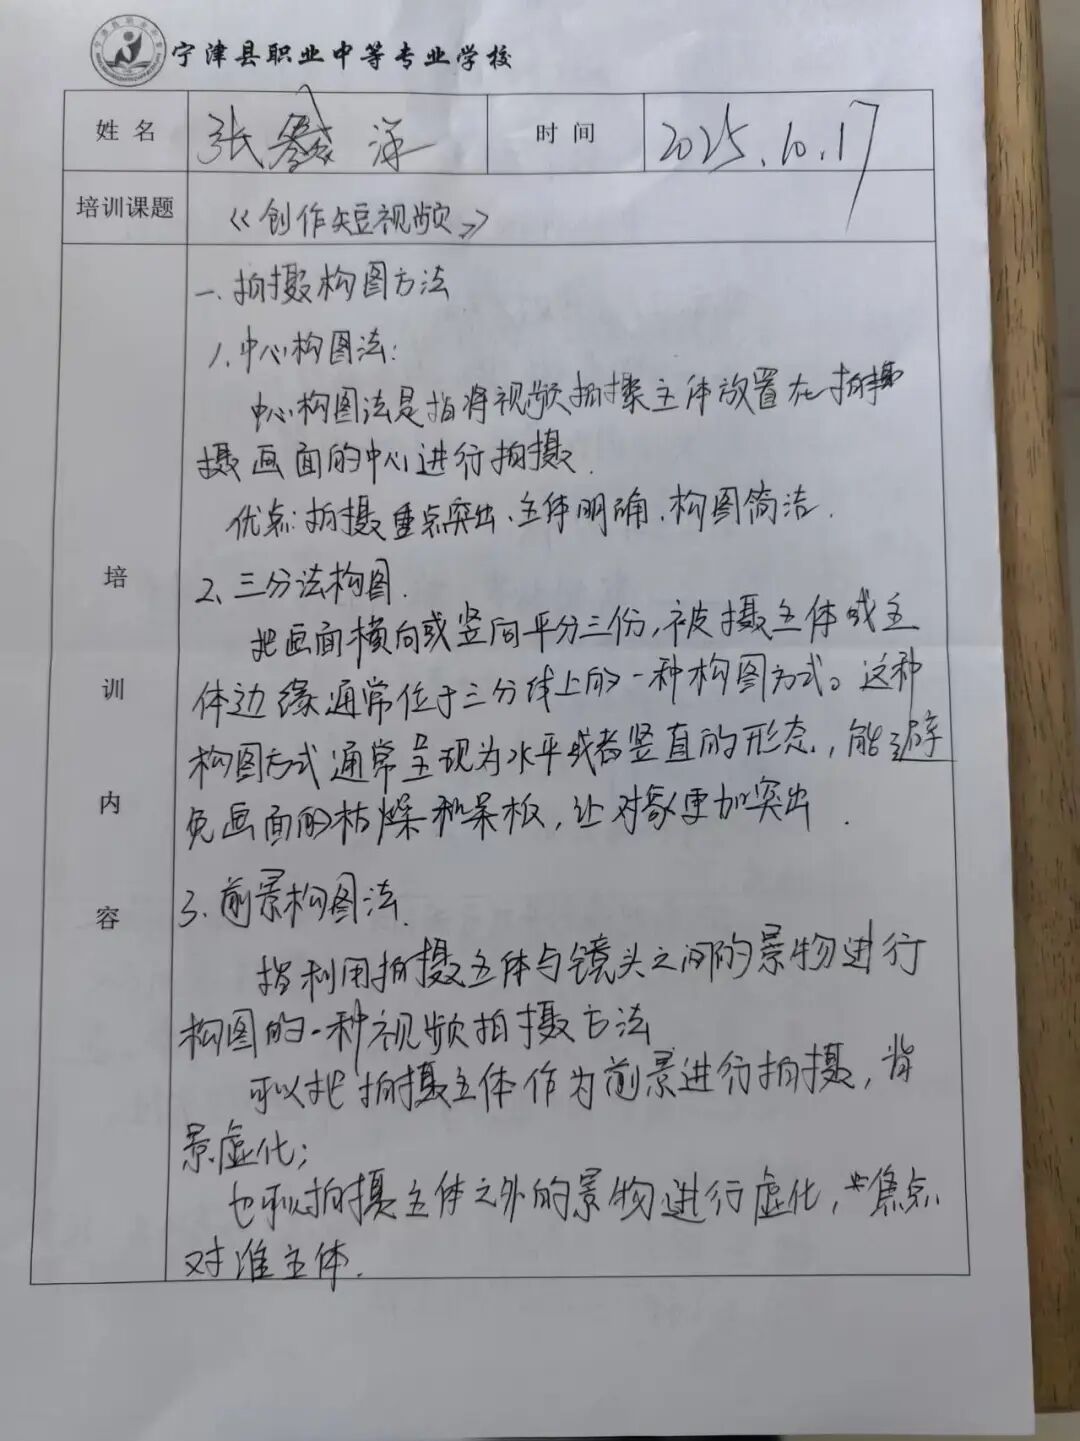 宁津县职业中等专业学校
姓名 张 洋 时间 2025.10.17
培训课题 《创作短视频》
培训内容
一.拍摄构图方法
1.中心构图法:
中心构图法是指将视频拍摄主体放置在拍摄
摄画面的中心进行拍摄.
优点:拍摄重点突出、主体明确、构图简洁.
2、三分法构图.
把画面横向或竖向平分三份,被摄主体或主
体边缘通常位于三分线上的一种构图方式。这种
构图方式通常呈现为水平或者竖直的形态,能避
免画面的枯燥和呆板,让对象更加突出.
3.前景构图法.
指利用拍摄主体与镜头之间的景物进行
构图的一种视频拍摄方法
可以把拍摄主体作为前景进行拍摄,背
景虚化;
也可以拍摄主体之外的景物进行虚化,焦点
对准主体.